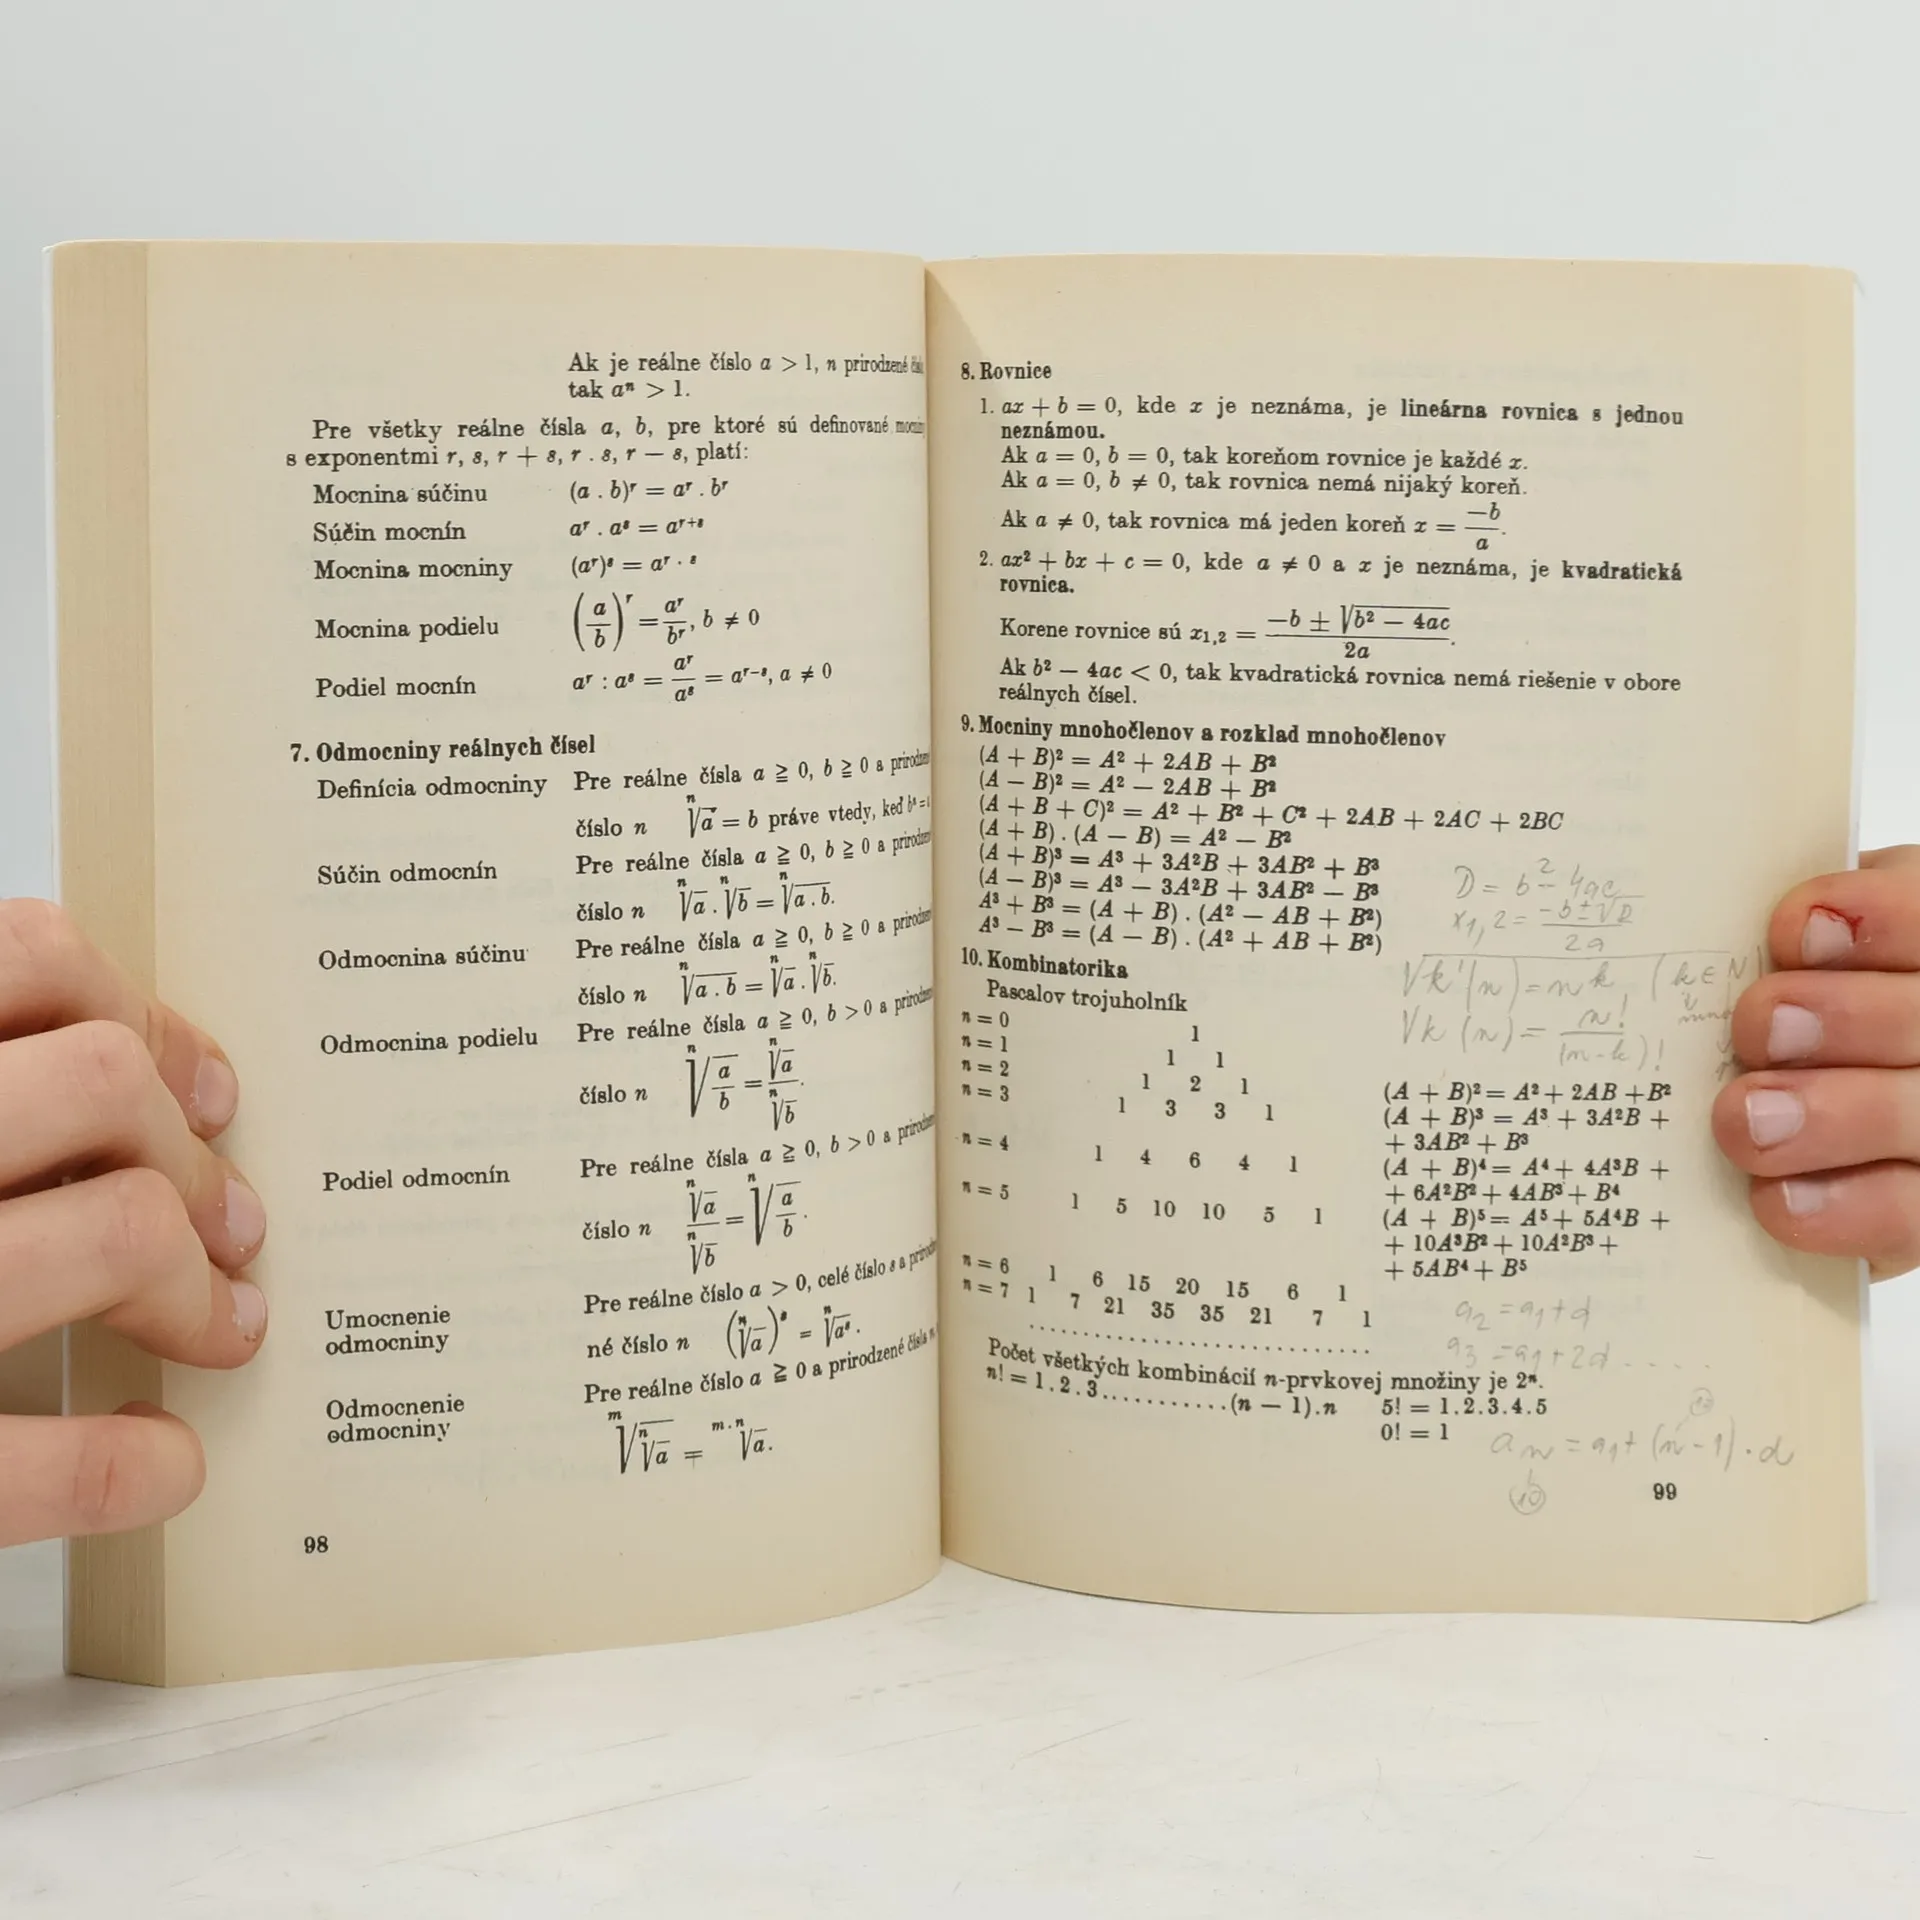 Ak je reálne číslo a > 1, n prirodzené
tak aⁿ > 1.
Pre všetky reálne čísla a, b, pre ktoré sú definované
s exponentmi r, s, r + s, r . s, r − s, platí:
Mocnina súčinu (a . b)ʳ = aʳ . bʳ
Súčin mocnín aʳ . aˢ = aʳ⁺ˢ
Mocnina mocniny (aʳ)ˢ = aʳ · ˢ
Mocnina podielu (a/b)ʳ = aʳ/bʳ, b ≠ 0
Podiel mocnín aʳ : aˢ = aʳ/aˢ = aʳ⁻ˢ, a ≠ 0
7. Odmocniny reálnych čísel
Definícia odmocniny Pre reálne čísla a ≧ 0, b ≧ 0 a
číslo n ⁿ√a = b práve vtedy, keď bⁿ =
Súčin odmocnín Pre reálne čísla a ≧ 0, b ≧ 0 a
číslo n ⁿ√a . ⁿ√b = ⁿ√(a . b).
Odmocnina súčinu Pre reálne čísla a ≧ 0, b ≧ 0 a
číslo n ⁿ√(a . b) = ⁿ√a . ⁿ√b.
Odmocnina podielu Pre reálne čísla a ≧ 0, b > 0 a
číslo n ⁿ√(a/b) = ⁿ√a/ⁿ√b.
Podiel odmocnín Pre reálne čísla a ≧ 0, b > 0 a
číslo n ⁿ√a/ⁿ√b = ⁿ√(a/b).
Umocnenie Pre reálne číslo a > 0, celé číslo s a
odmocniny né číslo n (ⁿ√a)ˢ = ⁿ√aˢ.
Odmocnenie Pre reálne číslo a ≧ 0 a prirodzené čísla
odmocniny ᵐ√ⁿ√a = ᵐ·ⁿ√a.
98
8. Rovnice
1. ax + b = 0, kde x je neznáma, je lineárna rovnica s jednou
neznámou.
Ak a = 0, b = 0, tak koreňom rovnice je každé x.
Ak a = 0, b ≠ 0, tak rovnica nemá nijaký koreň.
Ak a ≠ 0, tak rovnica má jeden koreň x = −b/a.
2. ax² + bx + c = 0, kde a ≠ 0 a x je neznáma, je kvadratická
rovnica.
Korene rovnice sú x₁,₂ = (−b ± √(b² − 4ac))/2a.
Ak b² − 4ac < 0, tak kvadratická rovnica nemá riešenie v obore
reálnych čísel.
9. Mocniny mnohočlenov a rozklad mnohočlenov
(A + B)² = A² + 2AB + B²
(A − B)² = A² − 2AB + B²
(A + B + C)² = A² + B² + C² + 2AB + 2AC + 2BC
(A + B) . (A − B) = A² − B²
(A + B)³ = A³ + 3A²B + 3AB² + B³
(A − B)³ = A³ − 3A²B + 3AB² − B³
A³ + B³ = (A + B) . (A² − AB + B²)
A³ − B³ = (A − B) . (A² + AB + B²)
D = b² − 4ac
x1,2 = (−b ± √D)/2a
Vk'(n) = nᵏ (k ∈ N
Vk (n) = n!/(n−k)!
10. Kombinatorika
Pascalov trojuholník
n = 0 1
n = 1 1 1
n = 2 1 2 1
n = 3 1 3 3 1
n = 4 1 4 6 4 1
n = 5 1 5 10 10 5 1
n = 6 1 6 15 20 15 6 1
n = 7 1 7 21 35 35 21 7 1
(A + B)² = A² + 2AB + B²
(A + B)³ = A³ + 3A²B +
+ 3AB² + B³
(A + B)⁴ = A⁴ + 4A³B +
+ 6A²B² + 4AB³ + B⁴
(A + B)⁵ = A⁵ + 5A⁴B +
+ 10A³B² + 10A²B³ +
+ 5AB⁴ + B⁵
a2 = a1 + d
a3 = a1 + 2d ....
Počet všetkých kombinácií n-prvkovej množiny je 2ⁿ.
n! = 1 . 2 . 3 ........... (n − 1) . n 5! = 1 . 2 . 3 . 4 . 5
0! = 1
an = a1 + (n−1) · d
10
99